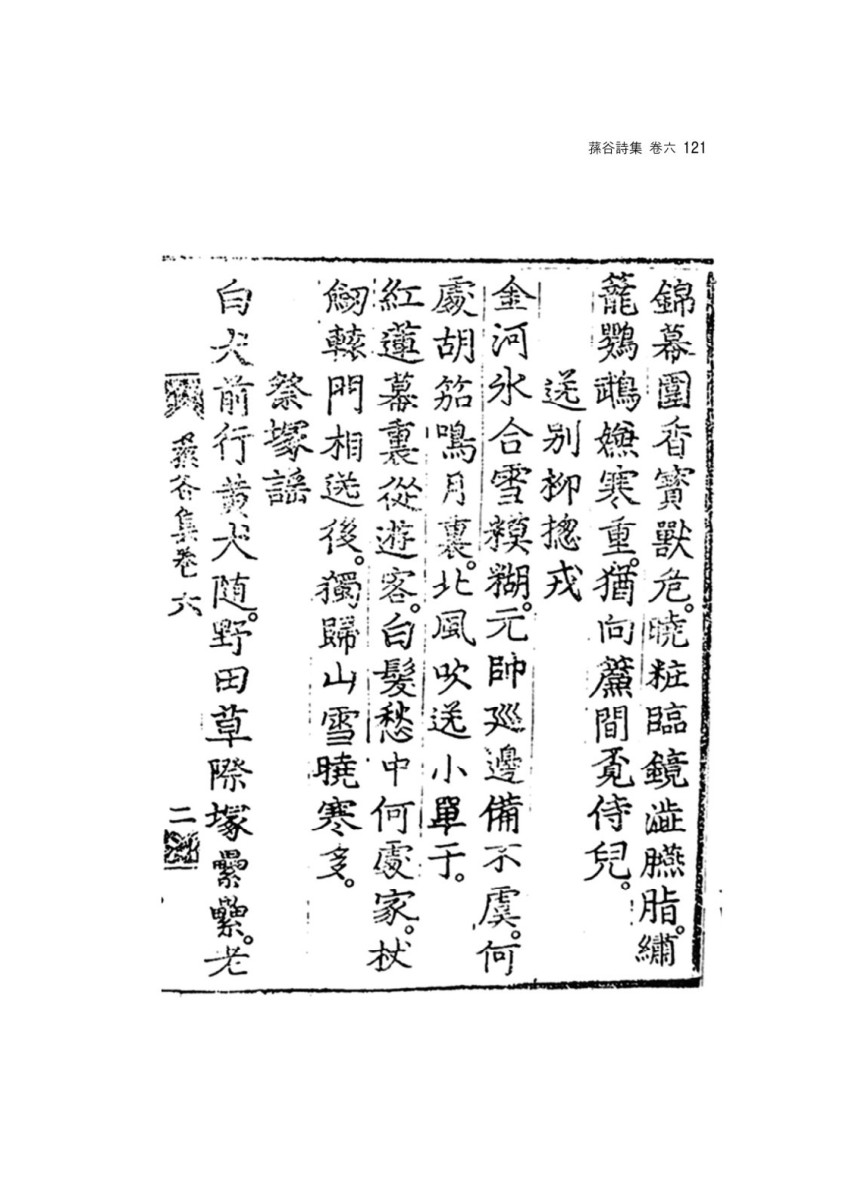 蓀谷詩集 卷六 121
錦幕圍香寶獸危。曉粧臨鏡澁臙脂。繡
籠鸚鵡嫌寒重。猶向簾間覓侍兒。
送別柳摠戎
金河氷合雪糢糊。元帥廵邊備不虞。何
處胡笳鳴月裏。北風吹送小單于。
紅蓮幕裏從遊客。白髮愁中何處家。杖
劒轅門相送後。獨歸山雪曉寒多。
祭塚謠
白犬前行黃犬隨。野田草際塚纍纍。老
蓀谷集卷六 二